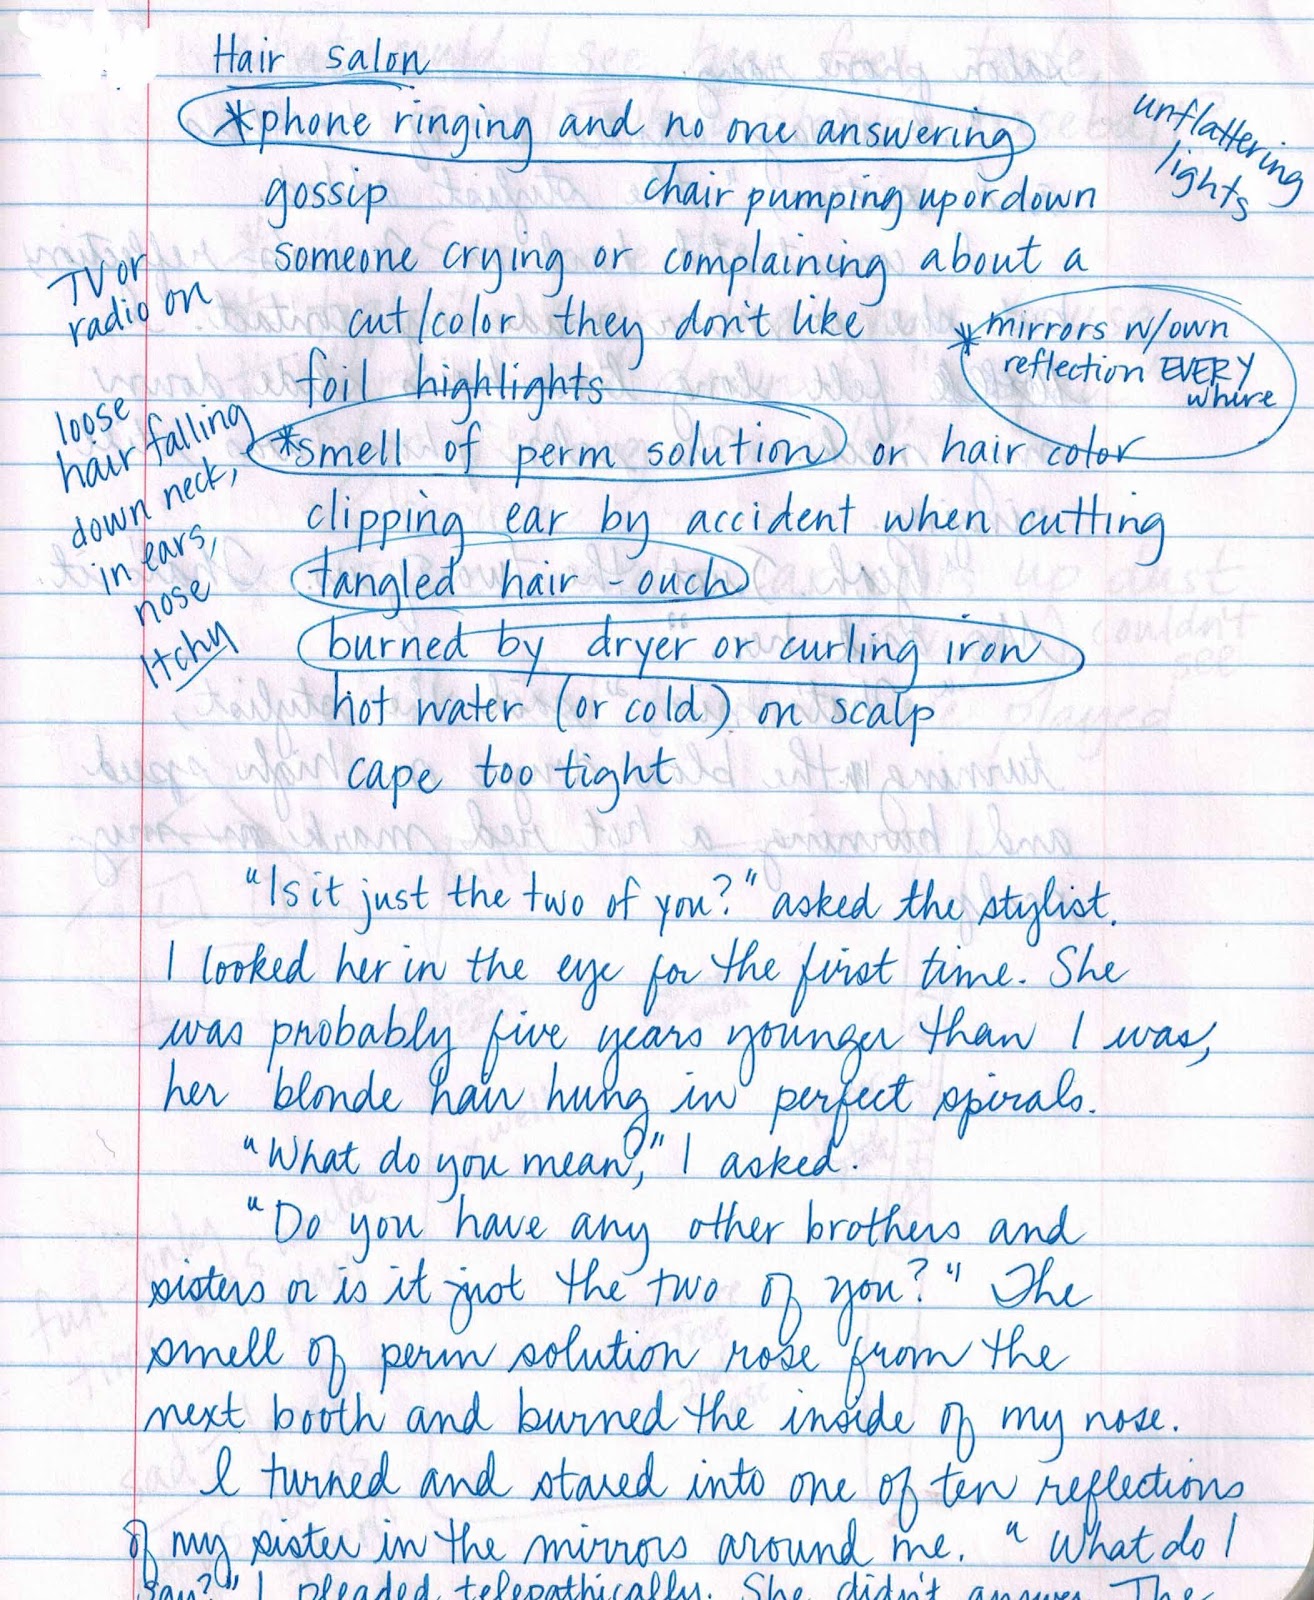 Hair salon
*phone ringing and no one answering
unflattering
lights
gossip chair pumping up or down
someone crying or complaining about a
cut/color they don't like
TV or
radio on
*mirrors w/own
reflection EVERY
where
foil highlights
*smell of perm solution or hair color
loose
hair falling
down neck,
in ears,
nose
Itchy
clipping ear by accident when cutting
tangled hair - ouch
burned by dryer or curling iron
hot water (or cold) on scalp
cape too tight
"Is it just the two of you?" asked the stylist.
I looked her in the eye for the first time. She
was probably five years younger than I was,
her blonde hair hung in perfect spirals.
"What do you mean?," I asked.
"Do you have any other brothers and
sisters or is it just the two of you?" The
smell of perm solution rose from the
next booth and burned the inside of my nose.
I turned and stared into one of ten reflections
of my sister in the mirrors around me. "What do I
say?" I pleaded telepathically. She didn't answer. The